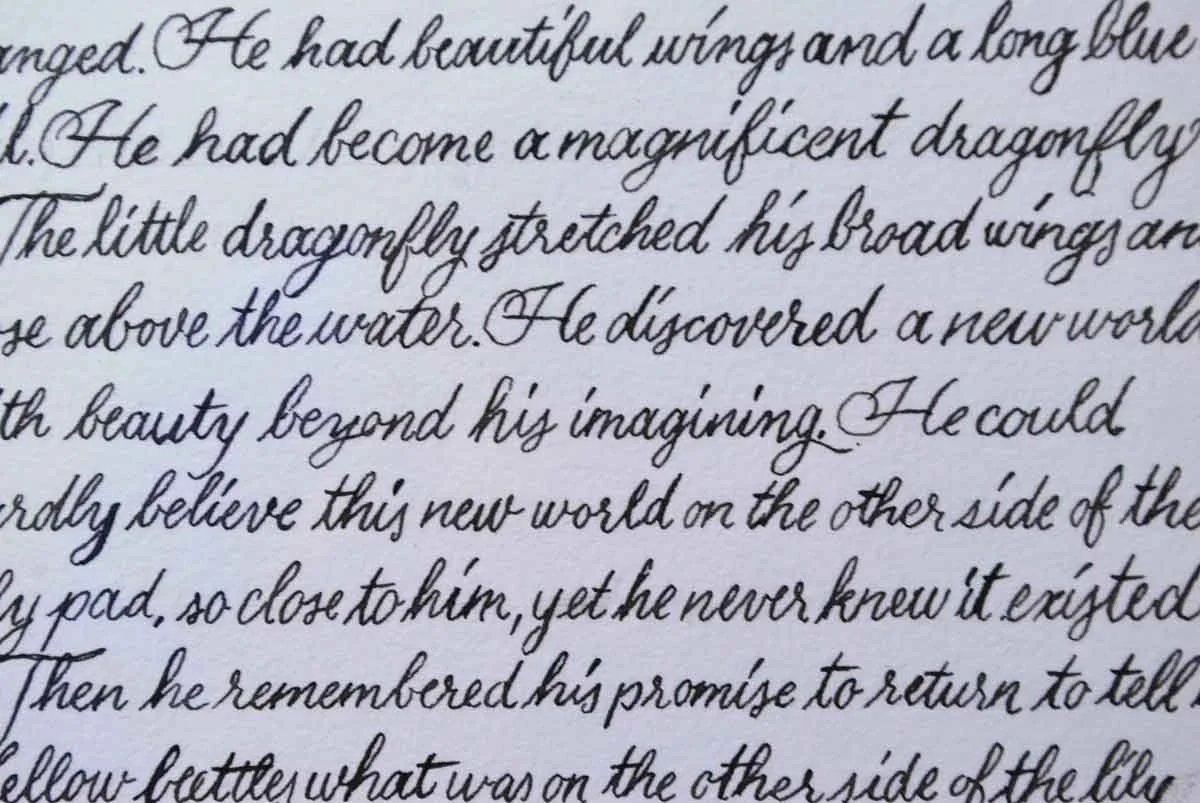 anged. He had beautiful wings and a long blue
l. He had become a magnificent dragonfly
The little dragonfly stretched his broad wings an
se above the water. He discovered a new world
th beauty beyond his imagining. He could
rdly believe this new world on the other side of the
ly pad, so close to him, yet he never knew it existed
Then he remembered his promise to return to tell
ellow beettles what was on the other side of the lily